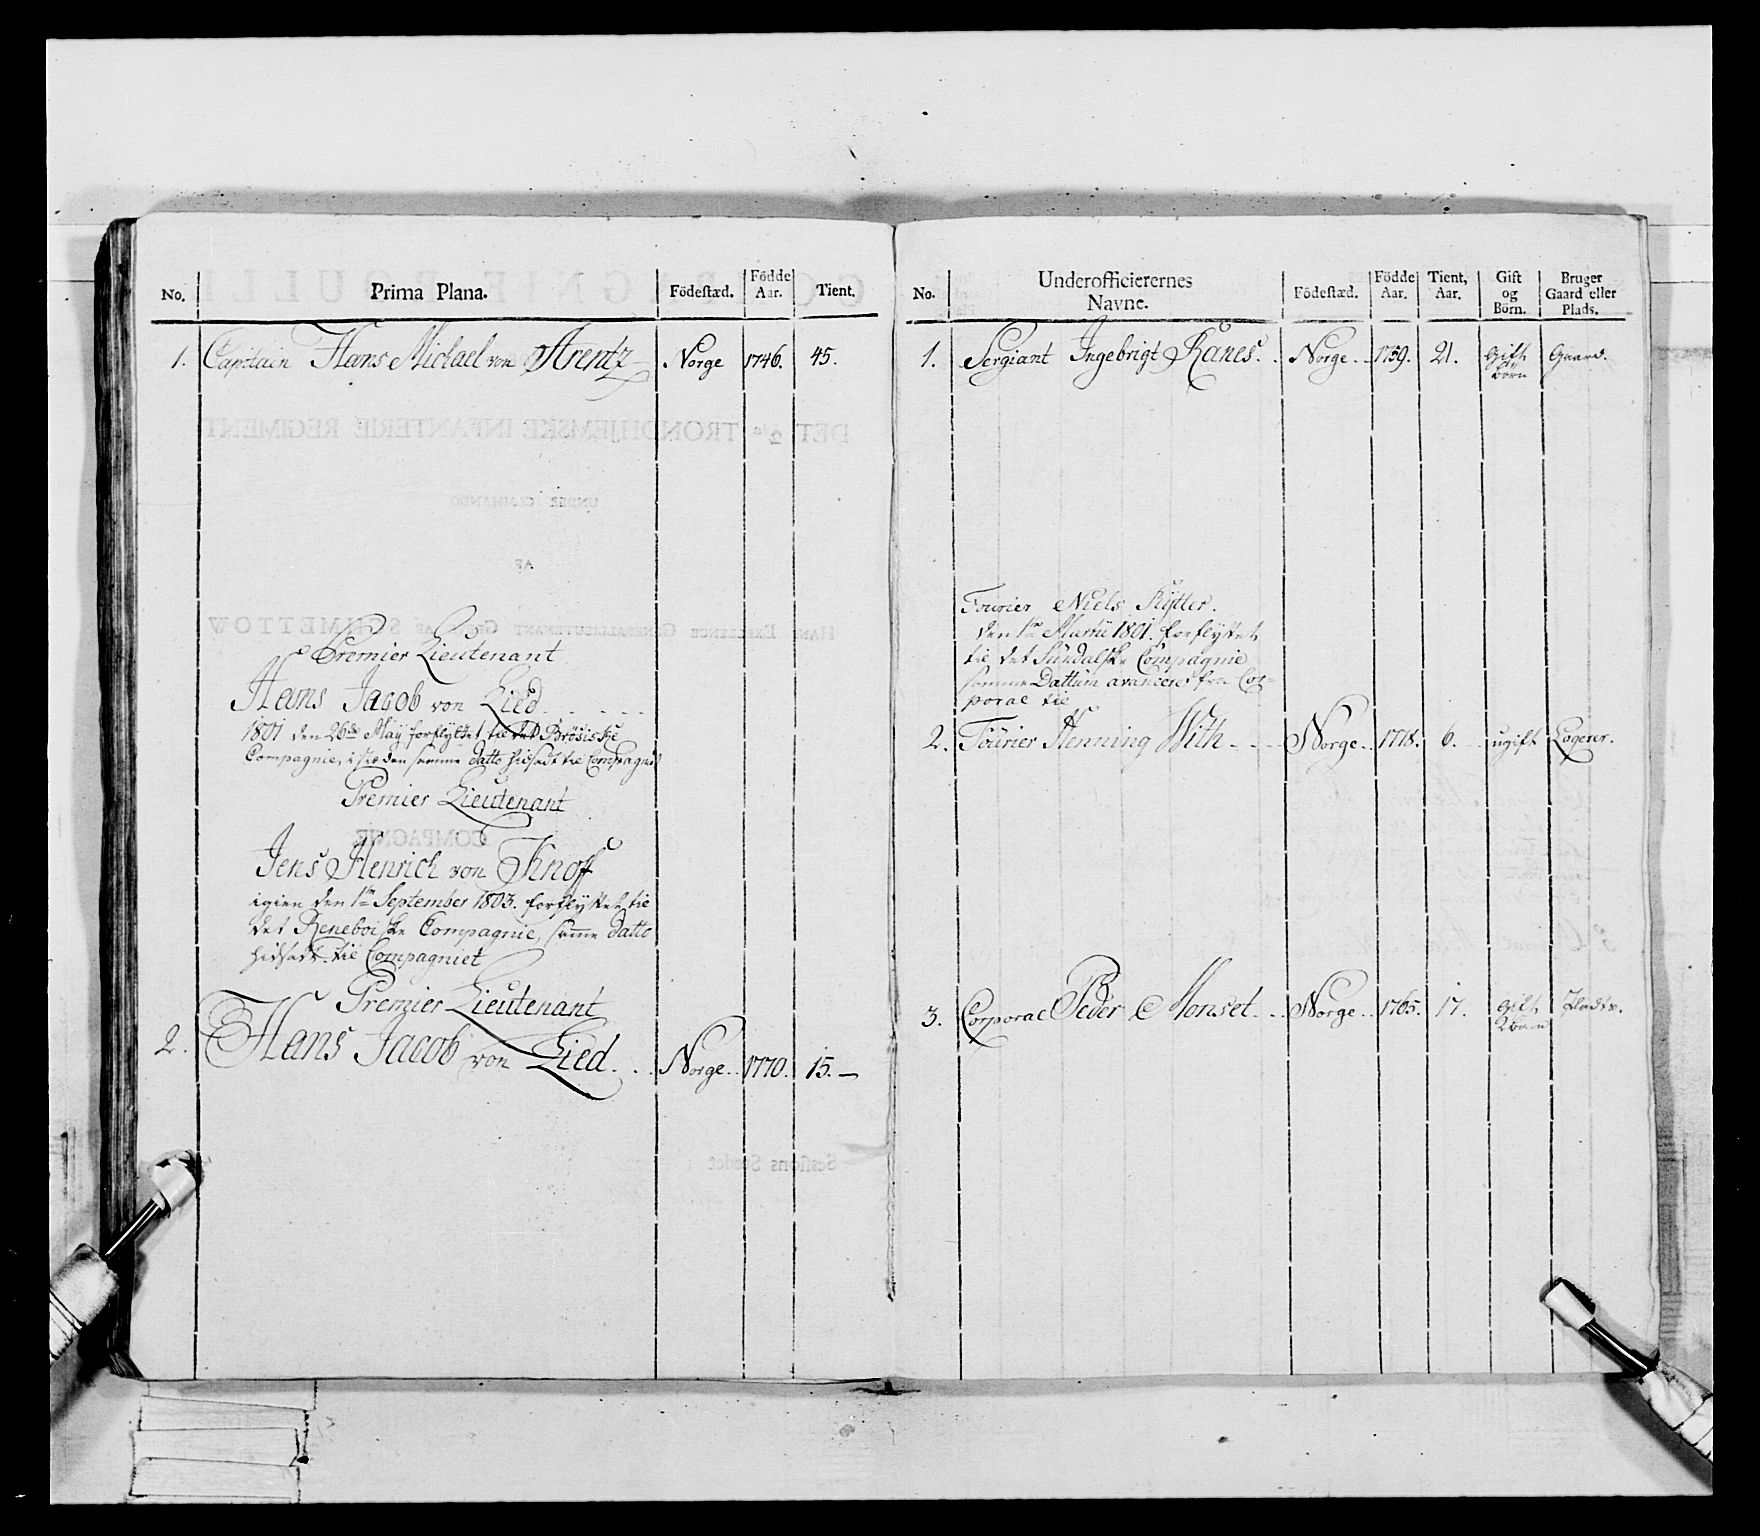 No. Prima Plana. Födestæd. Födde Aar. Tient.
1. Capitain Hans Michael von Arentz Norge 1746. 45.
Premier Lieutenant
Hans Jacob von Lied
1801 den 26de Maÿ forflyttet til det Brösiske
Compagnie, i stæden samme datto hidsadt til Compagniet
Premier Lieutenant
Jens Henrich von Knoff
igien den 1te September 1803. forflyttet til
det Reneboiske Compagnie, samme datto
hidsadt til Compagniet
Premier Lieutenant
2. Hans Jacob von Lied. Norge. 1770. 15.
No. Underofficierernes Navne. Födestæd. Födde Aar. Tient, Aar. Gift og Börn. Bruger Gaard eller Plads.
1. Sergiant Ingebrigt Ranes. Norge. 1759. 21. Gift Börn Gaard.
Fourier Niels Rÿtter.
den 1te Martii 1801. forflyttet
til det Sundalske Compagnie
samme Dattum avanceret fra Cor-
poral til
2. Fourier Henning With Norge. 1778. 6. ugift Logerer.
3. Corporal Peder Monset. Norge. 1765. 17. Gift Plads.
DET 2de TRONDHJEMSKE INFANTERIE REGIMENT
UNDER COMMANDO
AF
HANS EXELLENCE GENERALLIEUTENANT GREVE AF SCHMETTOW
COMPAGNIE
Sessions Stedet